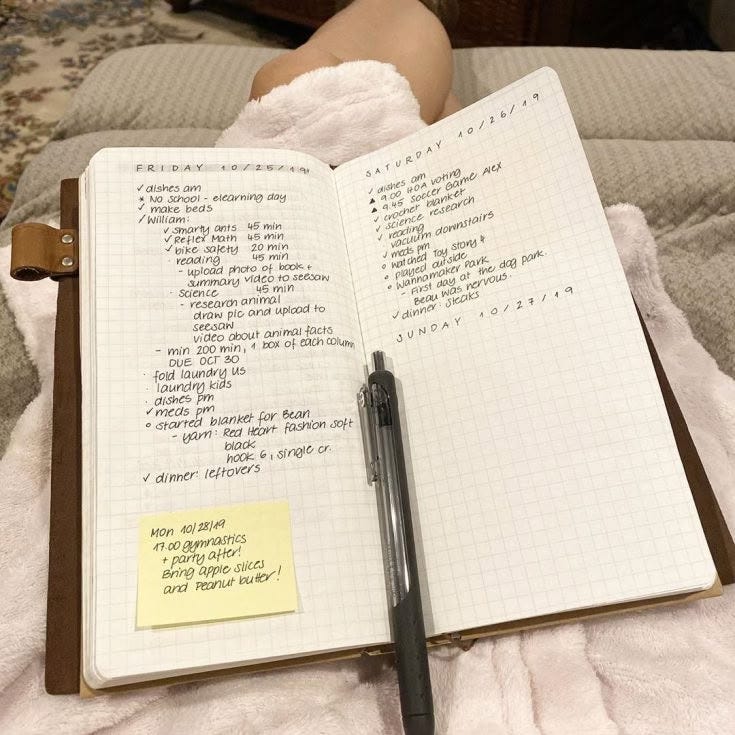 FRIDAY 10/25/19
✓ dishes am
* No school - elearning day
✓ make beds
✓ William:
✓ smarty ants 45 min
✓ Reflex Math 45 min
✓ bike safety 20 min
· reading 45 min
- upload photo of book +
summary video to seesaw
· science 45 min
- research animal
draw pic and upload to
seesaw
video about animal facts
- min 200 min, 1 box of each column
DUE OCT 30
· fold laundry us
· laundry kids
· dishes pm
✓ meds pm
o started blanket for Bean
- yarn: Red Heart fashion soft
black
hook 6, single cr.
✓ dinner: leftovers
Mon 10/28/19
17.00 gymnastics
+ party after!
Bring apple slices
and Peanut butter!
SATURDAY 10/26/19
✓ dishes am
▲ 9.00 HOA voting
▲ 9.45 Soccer Game Alex
✓ crochet blanket
✓ science research
✓ reading
vacuum downstairs
✓ meds pm
o watched Toy story 4
o played outside
o Wannamaker Park
- First day at the dog park.
Beau was nervous.
✓ dinner: steaks
SUNDAY 10/27/19